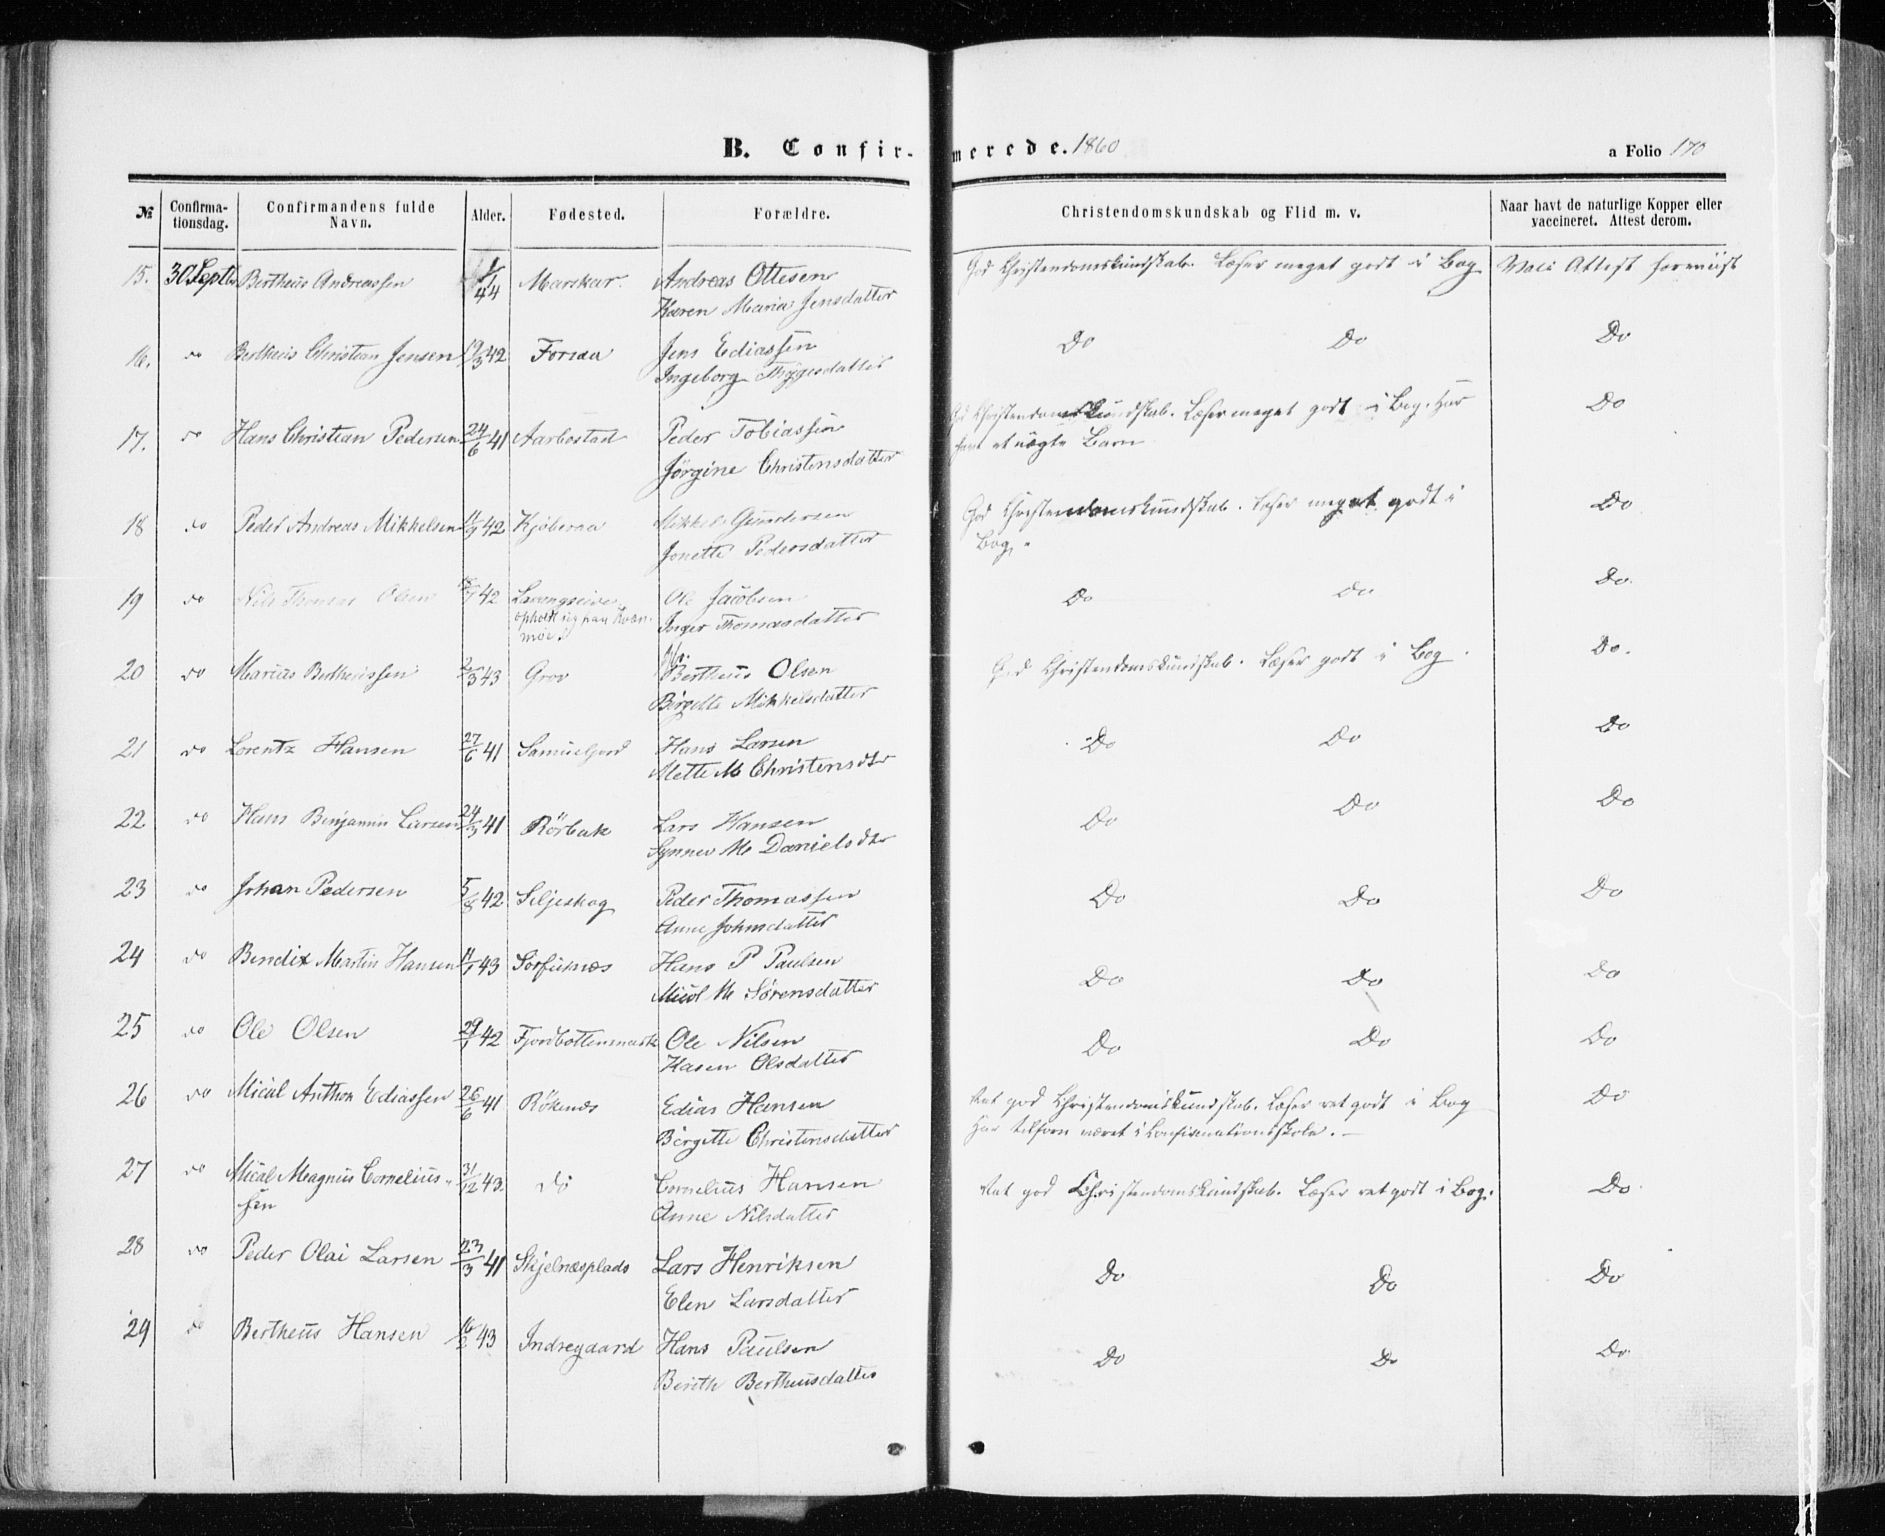 B. Confirmerede. 1860
a Folio 170
№ Confirmationsdag. Confirmandens fulde Navn. Alder. Fødested. Forældre. Christendomskundskab og Flid m. v. Naar havt de naturlige Kopper eller vaccineret. Attest derom.
15. 30 Septbr Bertheus Andreassen 44 Andreas Ottesen God Christendomskundskab. Læser meget godt i Bog Attest foreviist
Karen Maria Jensdatter
16. do Bertheus Christian Jensen 19/3 42 Forsaa Jens Ediassen Do Do Do
Ingeborg Thygesdatter
17. do Hans Christian Pedersen 24/6 41 Aarbostad Peder Tobiassen God Christendomskundskab. Læser meget godt i Bog. Har Do
Jörgine Christensdatter havt et uægte Barn
18 do Peder Andreas Mikkelsen 11/9 42 Kjöberaa Mikkel Gundersen God Christendomskundskab. Læser meget godt i Do
Jonette Pedersdatter Bog.
19 do Nils Thomas Olsen 42 Ole Jacobsen Do Do Do.
opholdt sig paa Inger Thomasdatter
20 do Marius Bertheussen 43 Grov Bertheus Olsen God Christendomskundskab. Læser godt i Bog. Do.
Birgitte Mikkelsdatter
21 do Lorentz Hansen 27/6 41 Hans Larsen Do Do Do
Mette M Christensdtr
22 do Hans Benjamin Larsen 24/3 41 Rörbak Lars Hansen Do Do Do
Synnev M Danielsdtr
23 do Johan Pedersen 5/8 42 Siljeskog Peder Thomassen Do Do Do
Anne Johnsdatter
24 do Bendix Martin Hansen 11/1 43 Hans P Paulsen Do Do Do
Micol M Sörensdatter
25 do Ole Olsen 29/1 42 Fjordbottensmark Ole Nilsen Do Do Do
Karen Olsdatter
26 do Mical Anthon Ediassen 26/6 41 Rökenæs Edias Hansen Ret god Christendomskundskab. Læser ret godt i Bog Do
Birgitte Christensdatter Har tilforn været i Confirmationsskole. —
27 do Mical Magnus Cornelius- 31/12 43. Do Cornelius Hansen Ret god Christendomskundskab. Læser ret godt i Bog. Do
sen Anne Nilsdatter
28 do Peder Olai Larsen 23/3 41 Skjelnæsplads Lars Henriksen Do Do Do
Elen Larsdatter
29 do Bertheus Hansen 16/2 43 Indregaard Hans Paulsen Do Do Do
Bereth Bertheusdatter